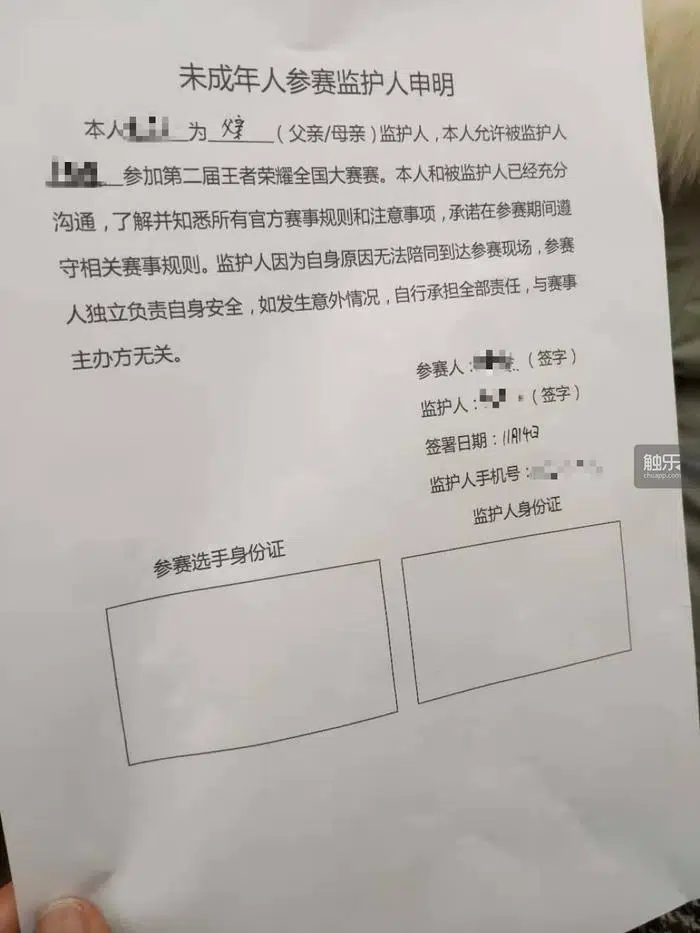 未成年人参赛监护人申明
本人 为 父亲 (父亲/母亲)监护人,本人允许被监护人
参加第二届王者荣耀全国大赛赛。本人和被监护人已经充分
沟通,了解并知悉所有官方赛事规则和注意事项,承诺在参赛期间遵
守相关赛事规则。监护人因为自身原因无法陪同到达参赛现场,参赛
人独立负责自身安全,如发生意外情况,自行承担全部责任,与赛事
主办方无关。
参赛人: (签字)
监护人: (签字)
签署日期:11月14日
监护人手机号:
参赛选手身份证
监护人身份证
触乐
chuapp.com